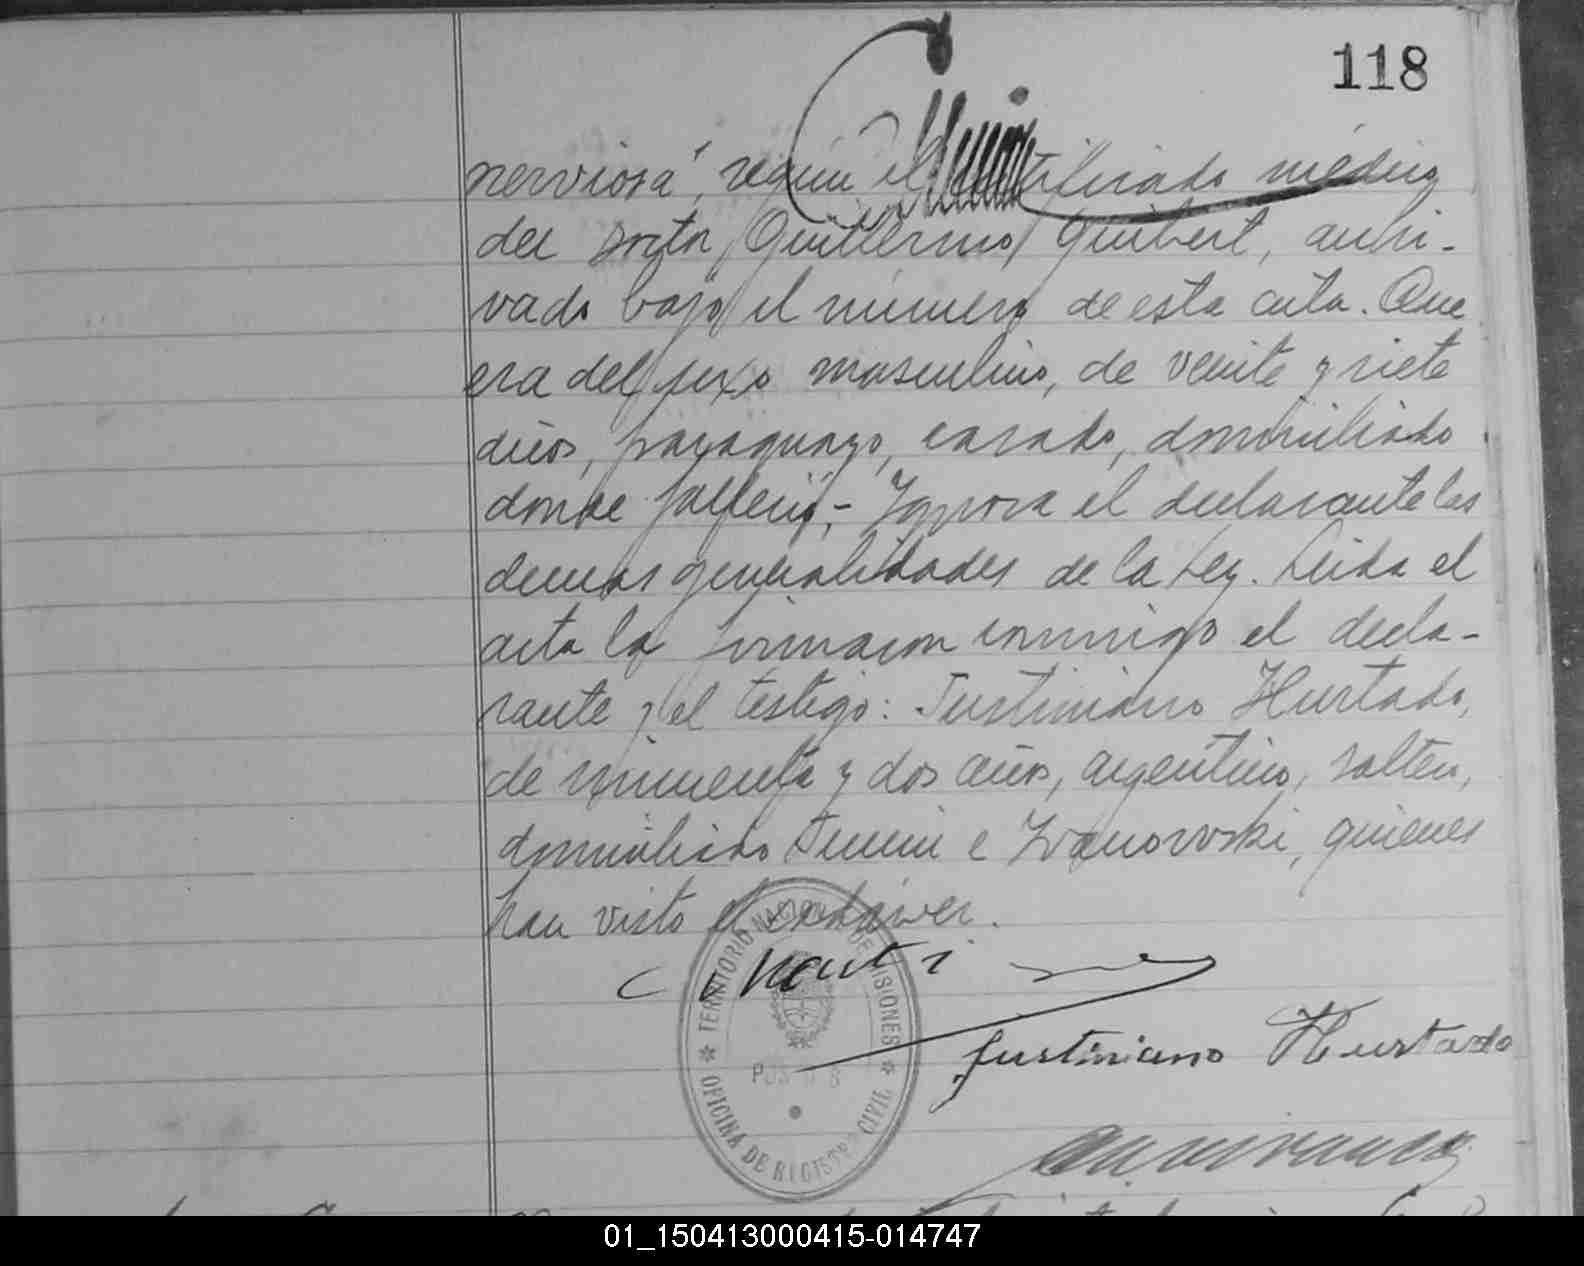 118
nerviosa", según el certificado médico
del doctor Guillermo Guibert, archi-
vado bajo el número de esta acta. Que
era del sexo masculino, de veinte y siete
años, paraguayo, casado, domiciliado
donde falleció,- Ignora el declarante las
demas generalidades de la Ley. Leida el
acta la firmaron conmigo el decla-
rante y el testigo: Justiniano Hurtado,
de cincuenta y dos años, argentino, soltero,
domiciliado Junin e Ivanovski, quienes
han visto el cadáver.
Justiniano Hurtado
TERRITORIO NACIONAL DE MISIONES
OFICINA DE REGISTRO CIVIL
01_150413000415-014747